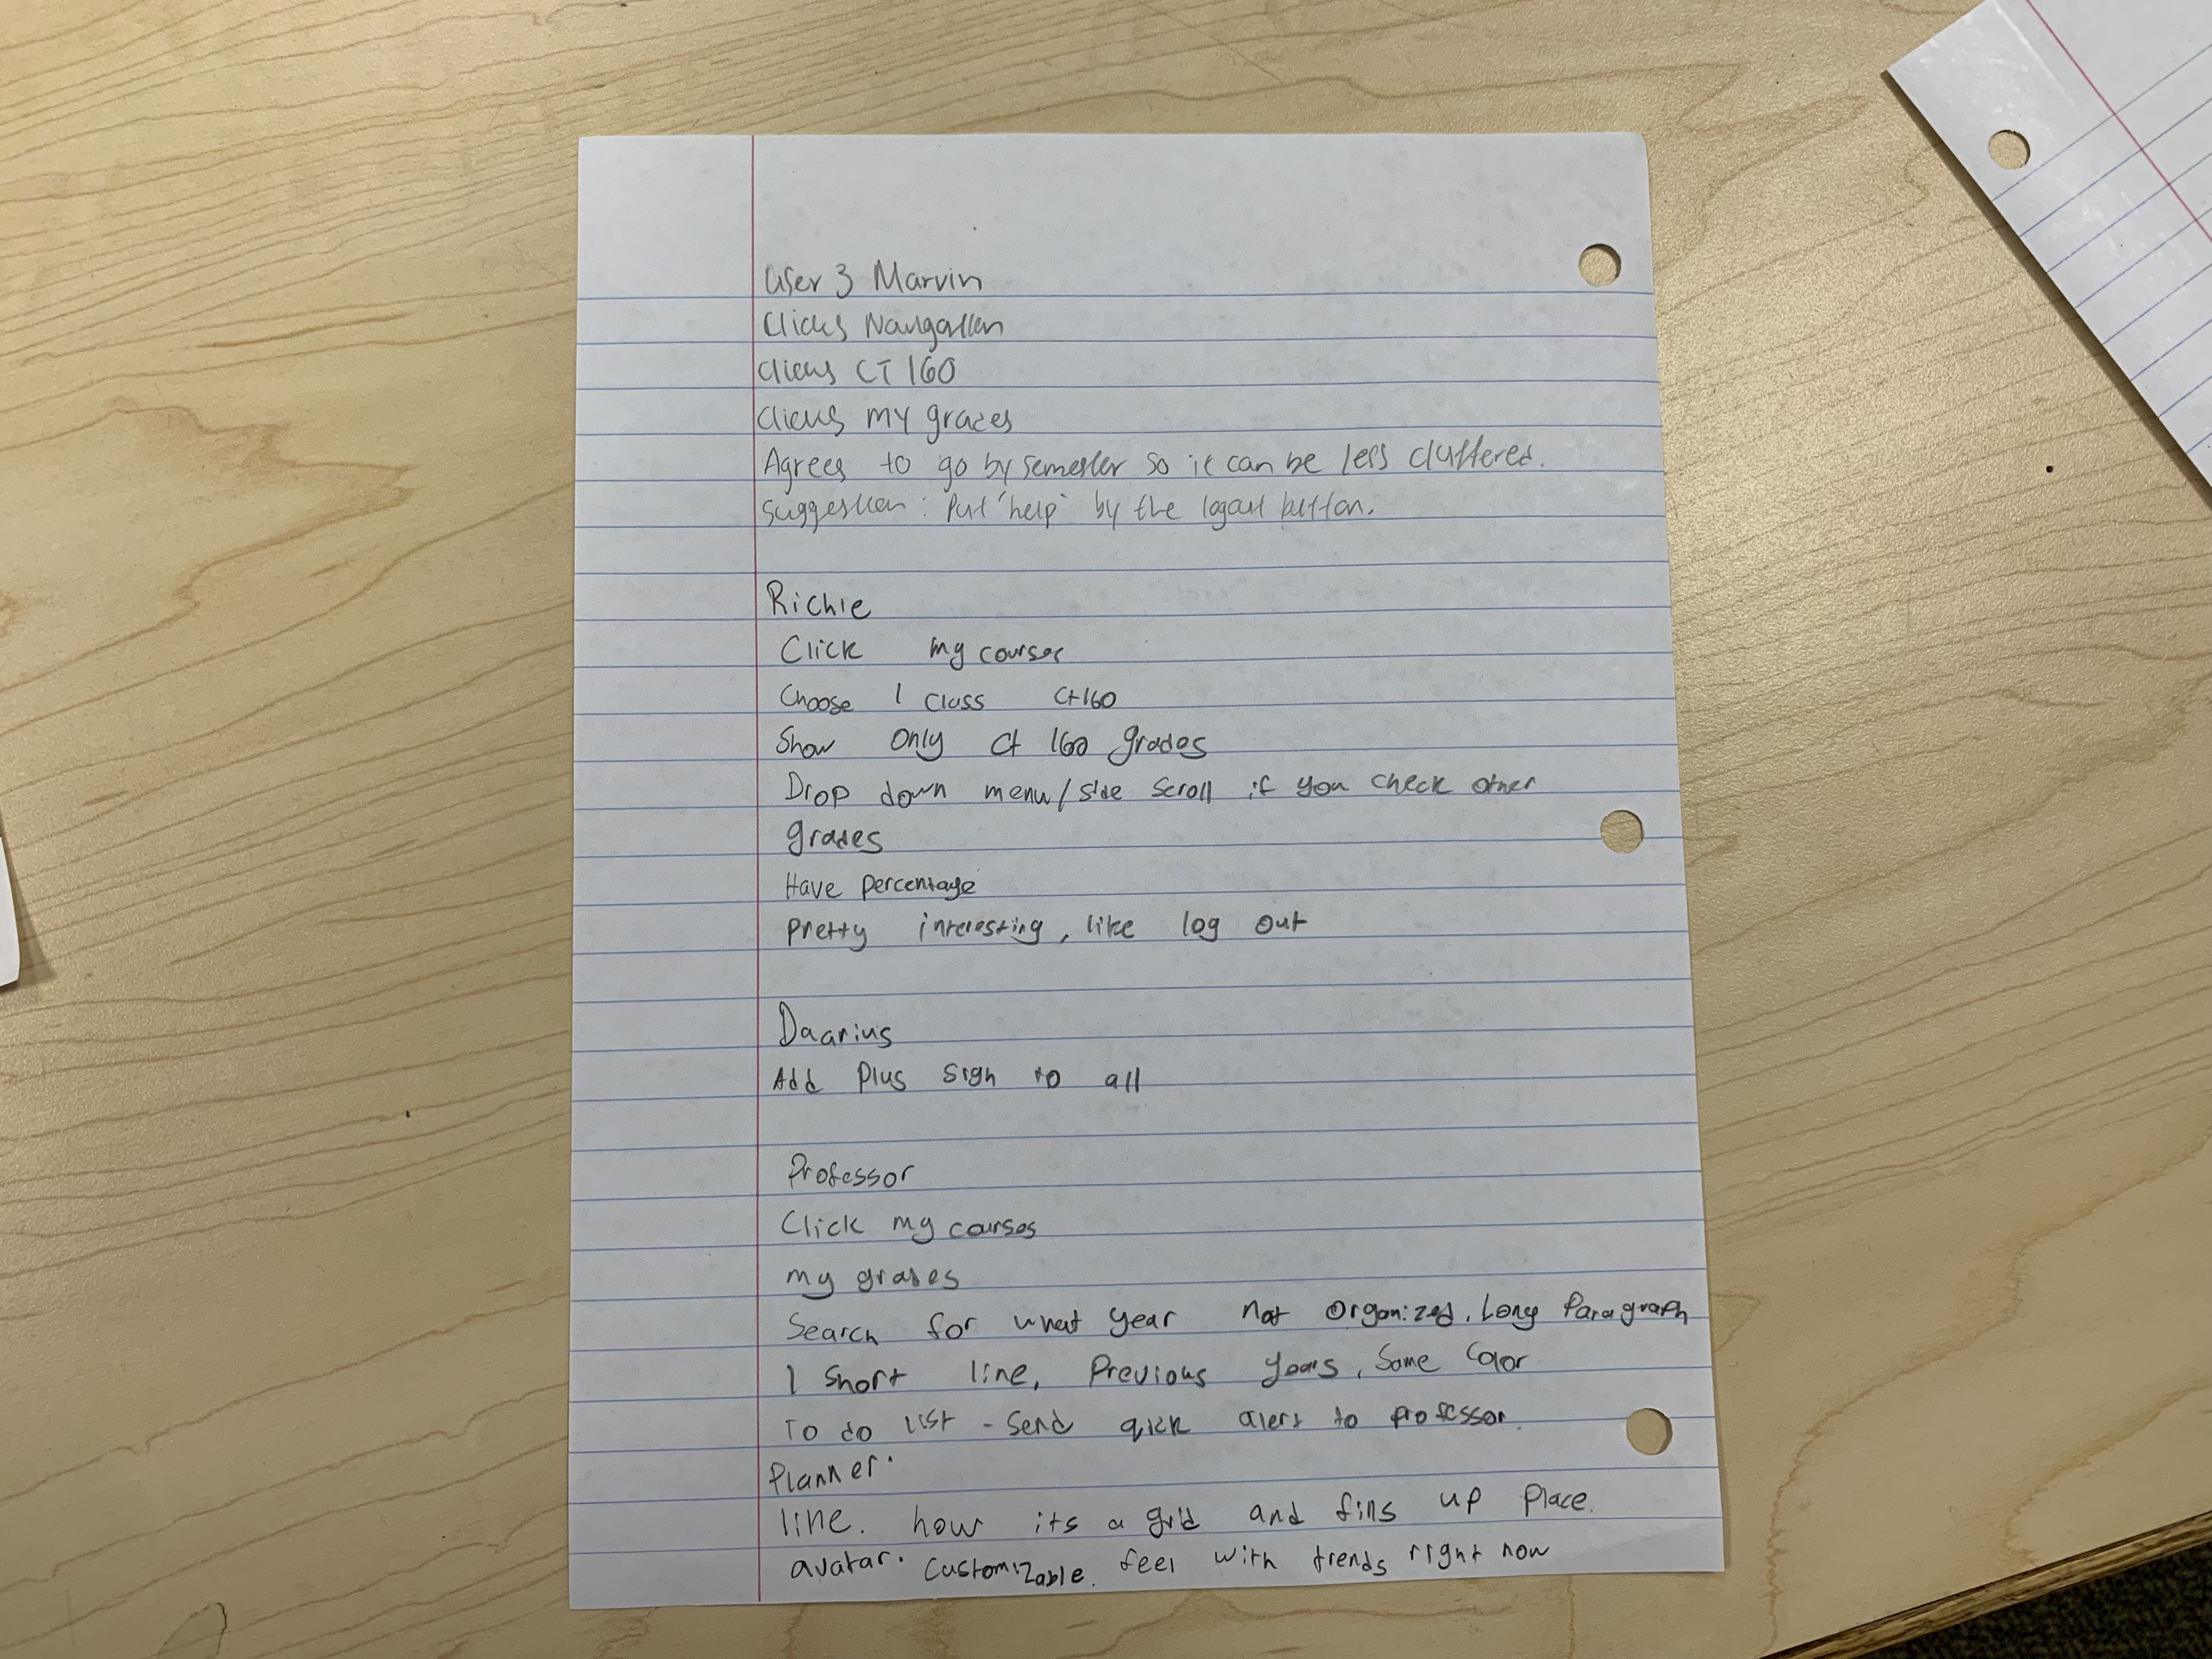 User 3 Marvin
Clicks Navigation
Clicks CT 160
Clicks my grades
Agrees to go by semester so it can be less cluttered.
Suggestion: Put "help" by the logout button.
Richie
Click my courses
Choose 1 class Ct160
Show Only Ct 160 grades
Drop down menu/side scroll if you check other
grades
Have percentage
pretty interesting, like log out
Daarius
Add Plus sign to all
Professor
Click my courses
my grades
Search for what year not organized. Long Paragraph
1 short line, Previous years, Same Color
To do list - send qick alert to professor.
Planner.
line. how its a grid and fills up place.
avatar. Customizable. feel with trends right now